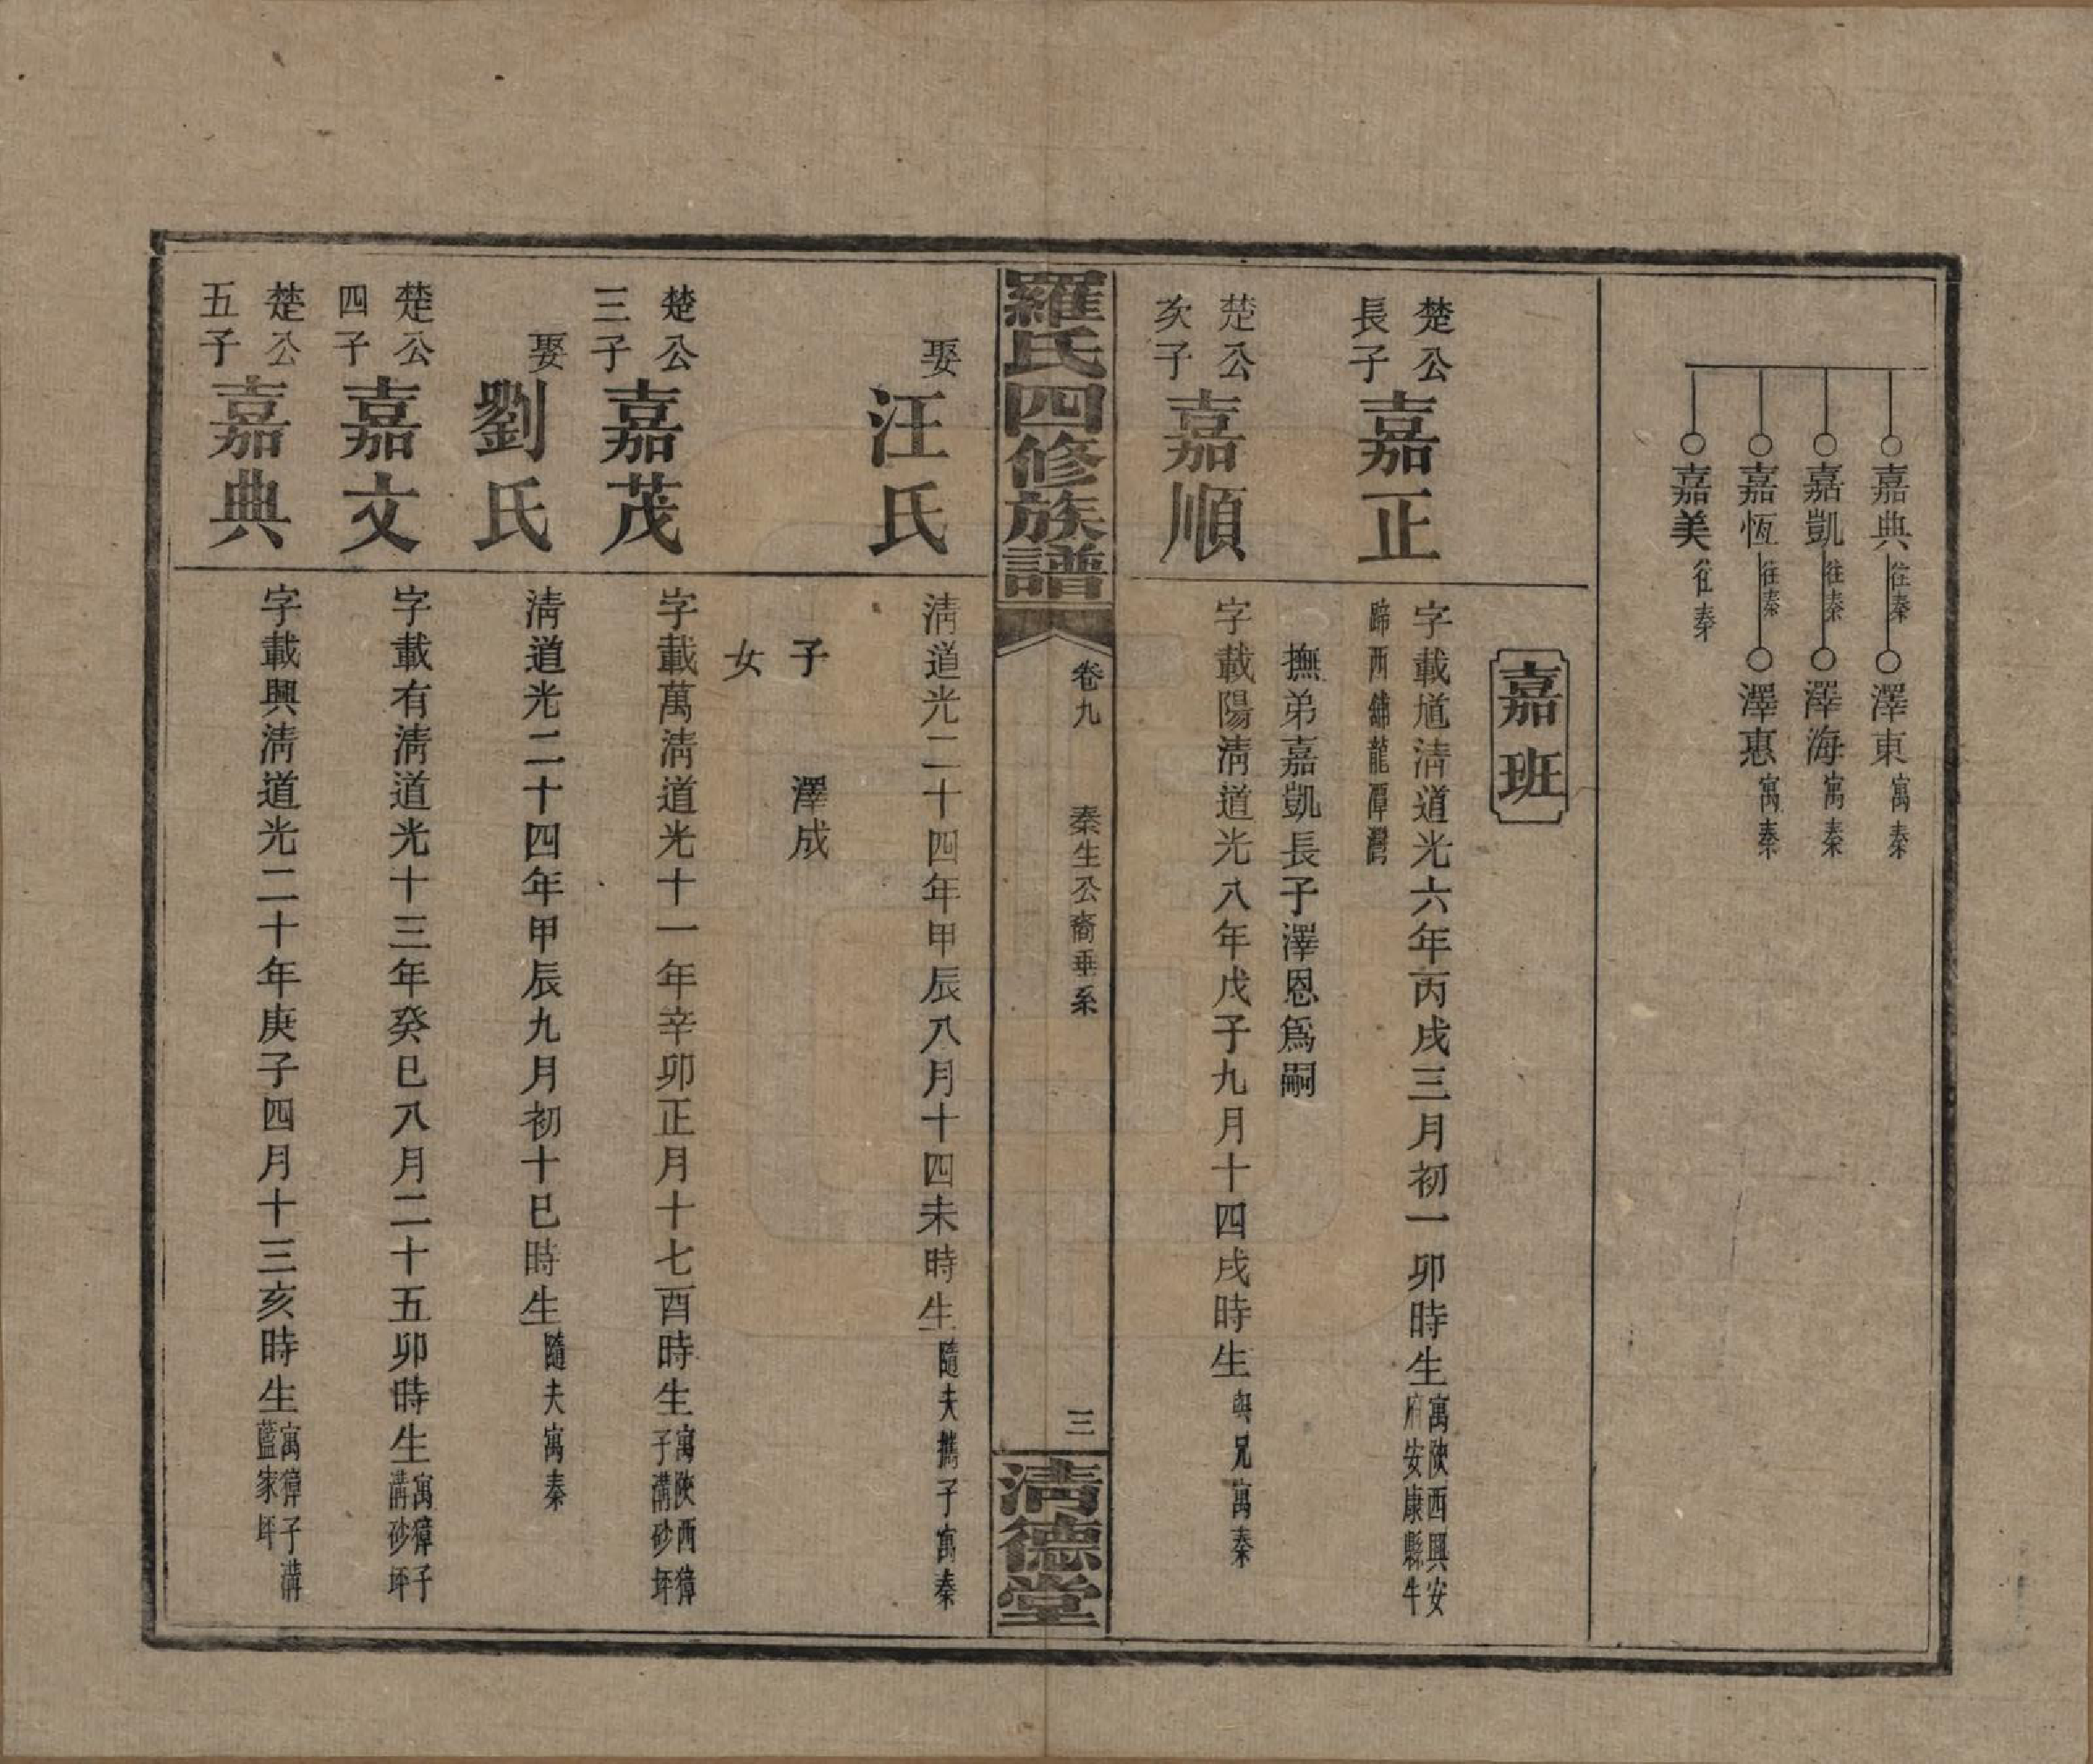 嘉典往秦 澤東寓秦
嘉凱往秦 澤海寓秦
嘉恆往秦 澤惠寓秦
嘉美往秦
嘉班
楚公長子嘉正
字載馗清道光六年丙戌三月初一卯時生寓陝西興安府安康縣牛
蹄西舖龍潭灣
撫弟嘉凱長子澤恩爲嗣
楚公次子嘉順
字載陽清道光八年戊子九月十四戌時生與兄寓秦
羅氏四修族譜
卷九 秦生公裔垂系 三
清德堂
娶汪氏
清道光二十四年甲辰八月十四未時生隨夫攜子寓秦
子 澤成
女
楚公三子嘉茂
字載萬清道光十一年辛卯正月十七酉時生寓陝西獐子溝砂坪
娶劉氏
清道光二十四年甲辰九月初十巳時生隨夫寓秦
楚公四子嘉文
字載有清道光十三年癸巳八月二十五卯時生寓獐子溝砂坪
楚公五子嘉典
字載興清道光二十年庚子四月十三亥時生寓獐子溝藍家坪